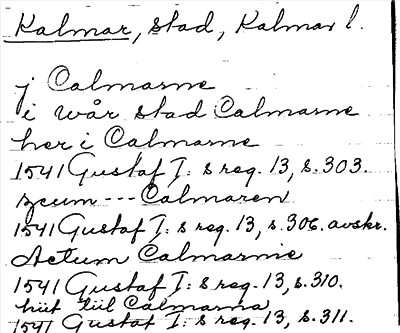 Kalmar, stad, Kalmar l.
j Calmarne
i wår stad Calmarne
her i Calmarne
1541 Gustaf I: s reg. 13, s. 303.
zcum --- Calmaren
1541 Gustaf I: s reg. 13, s. 306. avskr.
Actum Calmarnie
1541 Gustaf I: s reg. 13, s. 310.
hiit tiil Calmarna
1541 Gustaf I: s reg. 13, s. 311.